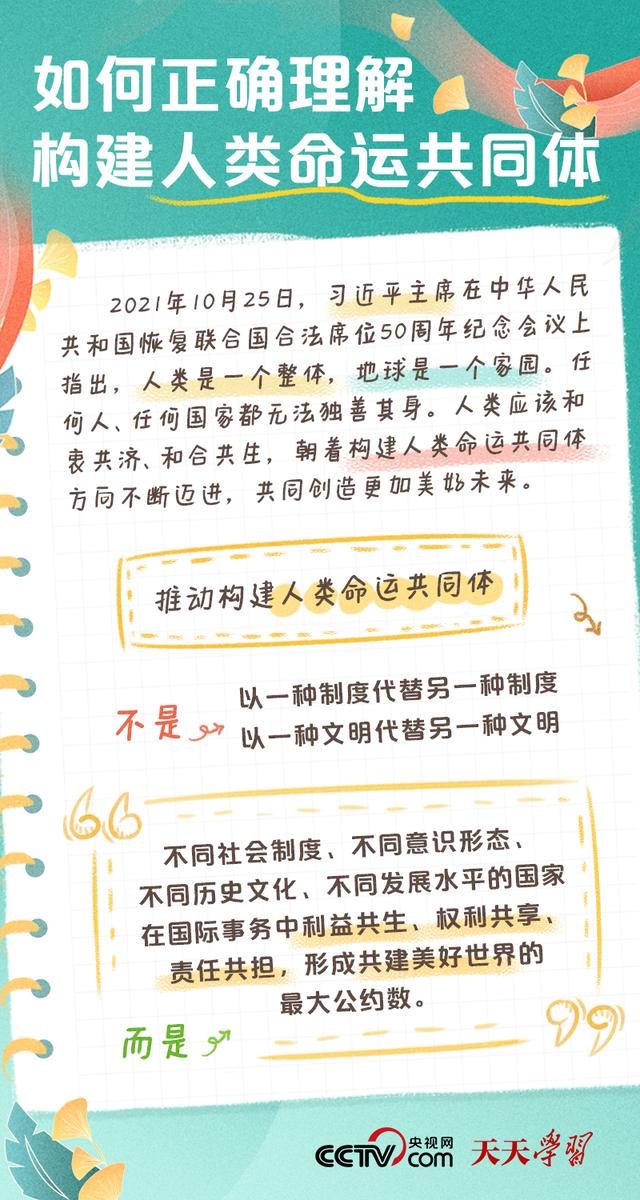 如何正确理解
构建人类命运共同体
2021年10月25日，习近平主席在中华人民
共和国恢复联合国合法席位50周年纪念会议上
指出，人类是一个整体，地球是一个家园。任
何人、任何国家都无法独善其身。人类应该和
衷共济、和合共生，朝着构建人类命运共同体
方向不断迈进，共同创造更加美好未来。
推动构建人类命运共同体
不是
以一种制度代替另一种制度
以一种文明代替另一种文明
不同社会制度、不同意识形态、
不同历史文化、不同发展水平的国家
在国际事务中利益共生、权利共享、
责任共担，形成共建美好世界的
最大公约数。
而是
CCTV.com 央视网 天天学習